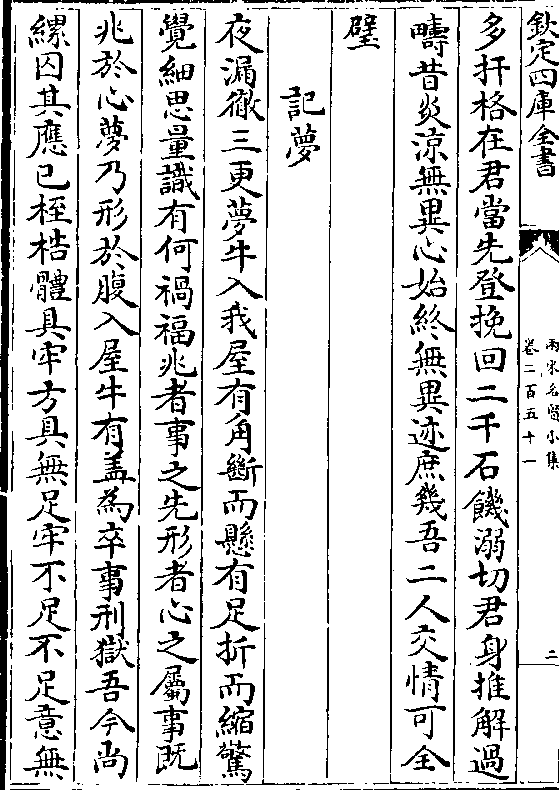 欽定四庫全書
兩宋名賢小集
卷二百五十一
二
多扞格在君當先登挽回二千石饑溺切君身推解過
疇昔炎涼無異心始終無異迹庶幾吾二人交情可全
璧
記夢
夜漏徹三更夢牛入我屋有角斷而懸有足折而縮驚
覺細思量識有何禍福兆者事之先形者心之屬事既
兆於心夢乃形於腹入屋牛有蓋為卒事刑獄吾今尚
縲囚其應已桎梏體具牢方具無足牢不足不足意無